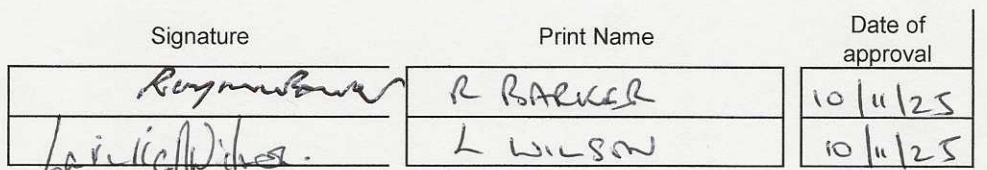 Signature Print Name Date of
approval
R BARKER 10/11/25
L WILSON 10/11/25